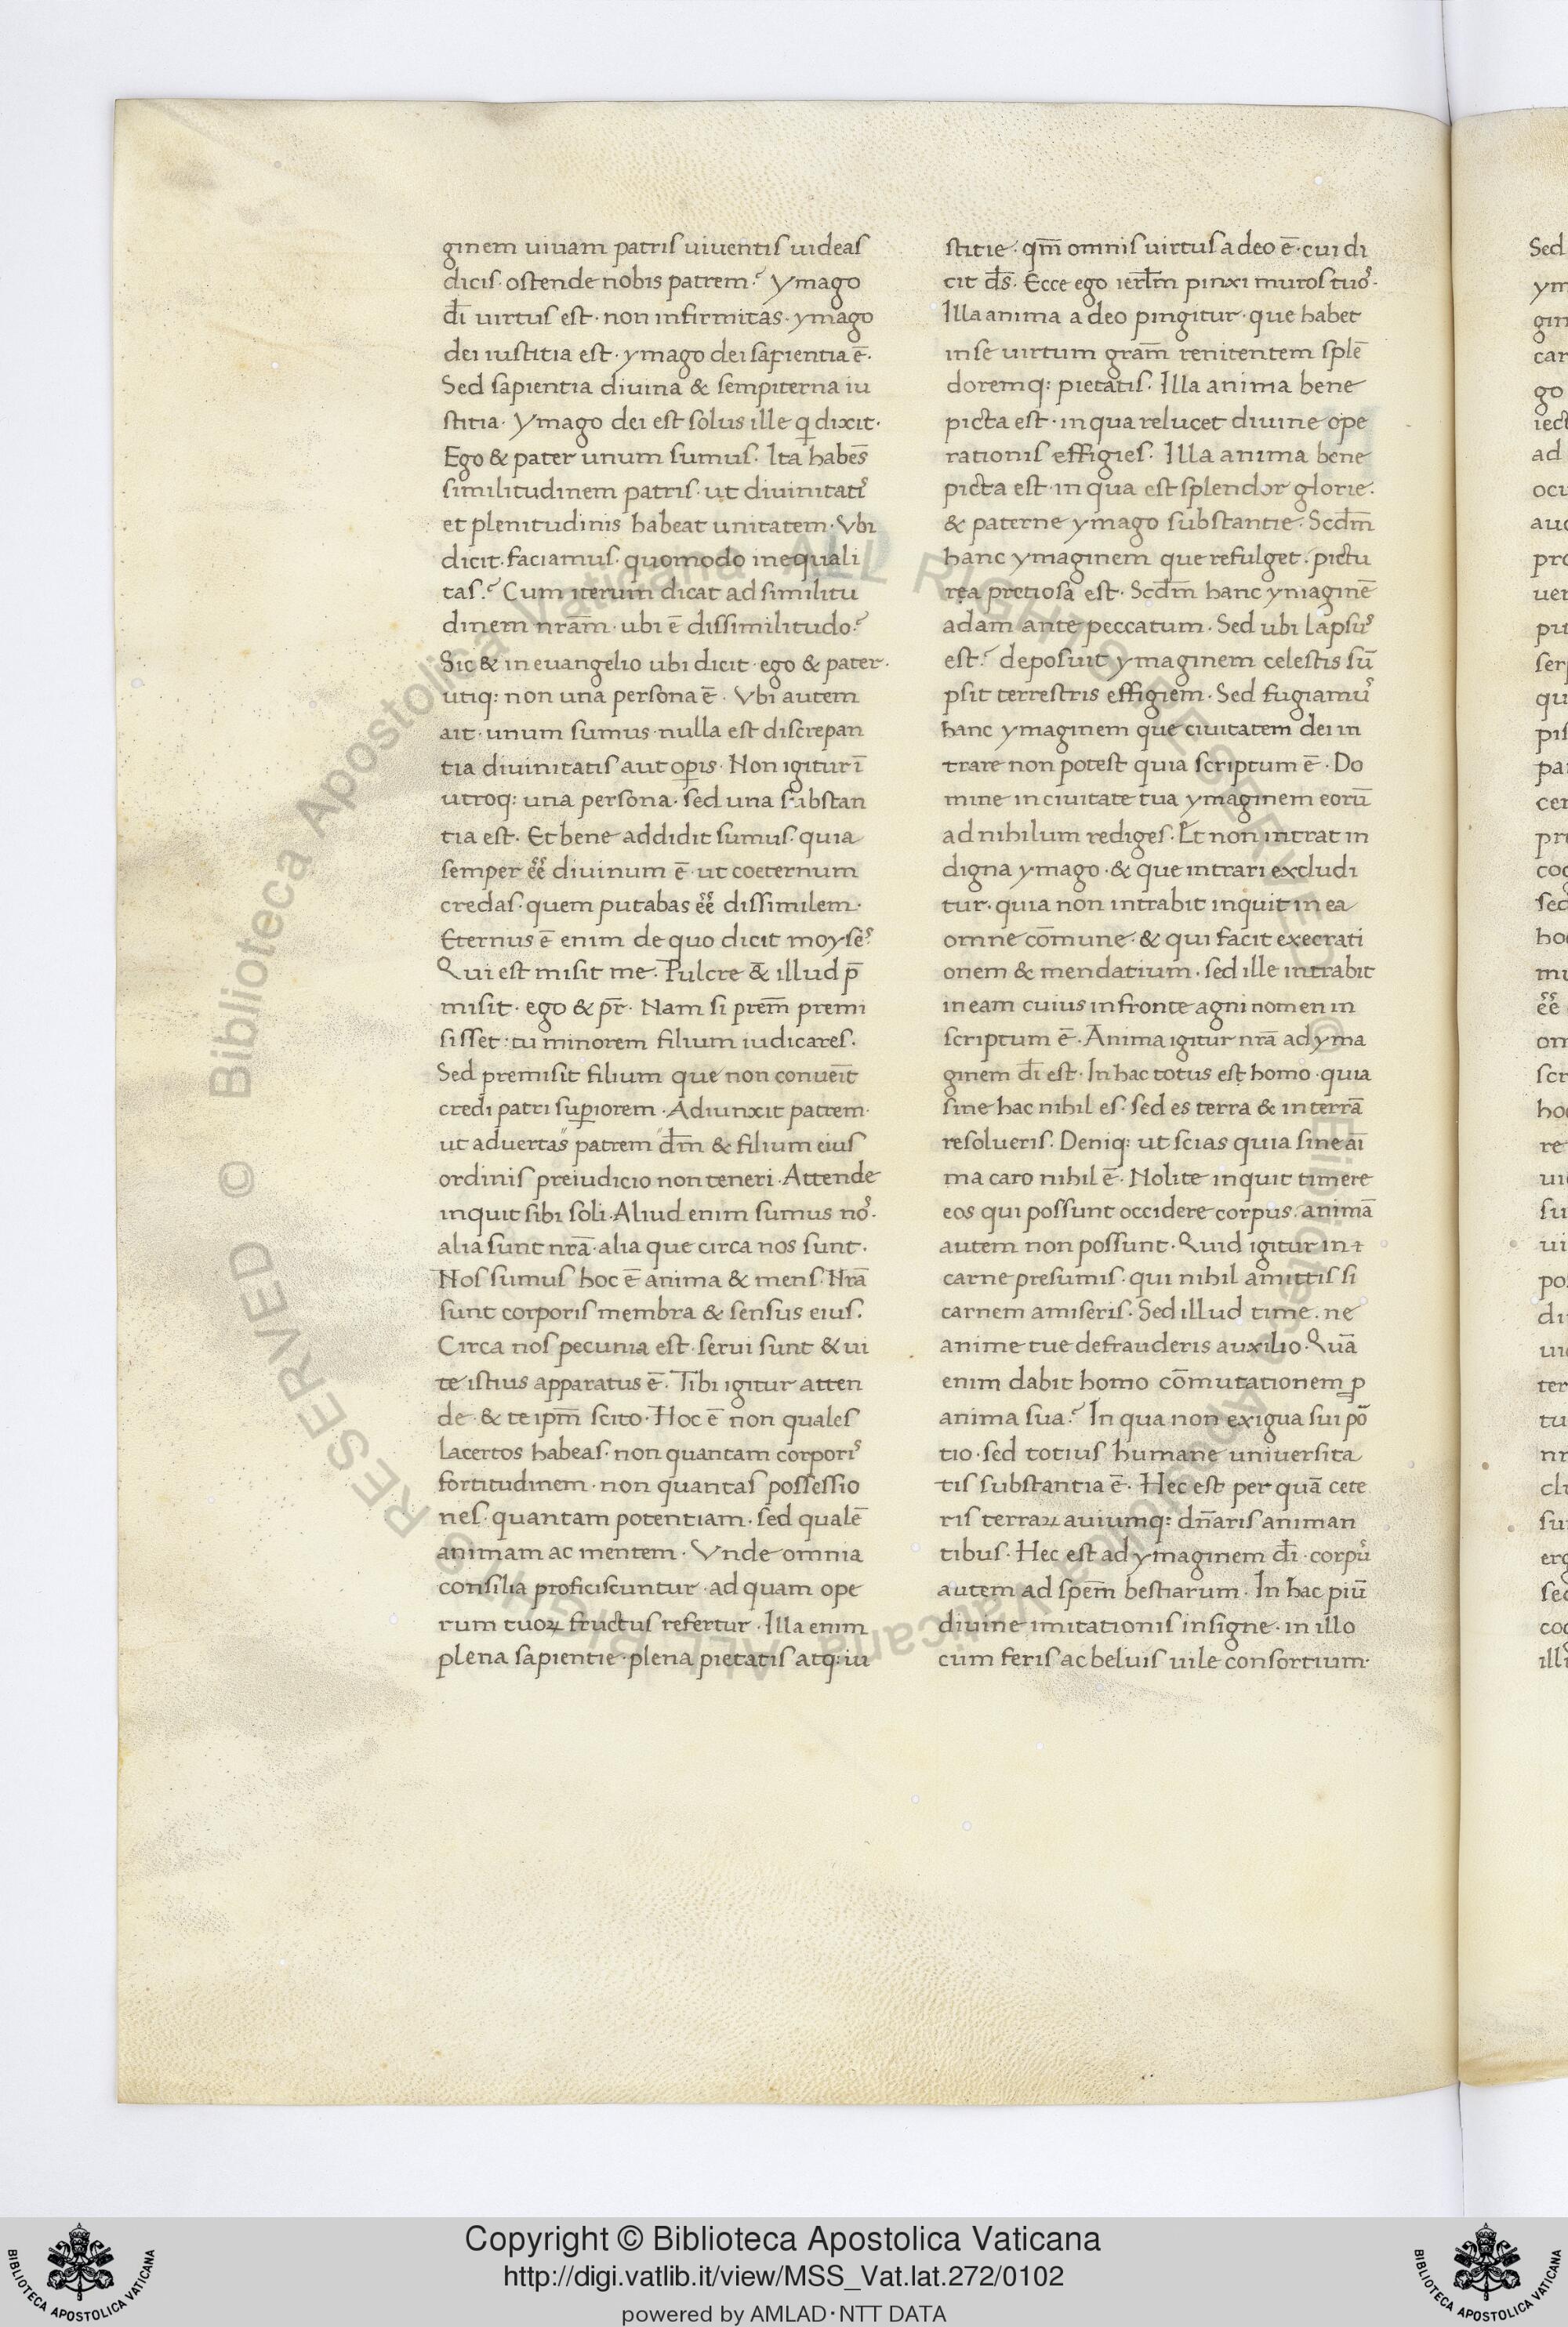 ginem uiuam patris uiuentis uideas
dicis· ostende nobis patrem? ymago
dī uirtus est· non infirmitas· ymago
dei iustitia est· ymago dei sapientia ē·
Sed sapientia diuina & sempiterna iu
stitia· ymago dei est solus ille q̄ dixit·
Ego & pater unum sumus· Ita habēs
similitudinem patris· ut diuinitatꝭ
et plenitudinis habeat unitatem· Vbi
dicit· faciamus· quomodo inequali
tas? Cum iterum dicat ad similitu
dinem nrām· ubi ē dissimilitudo?
Sic & in euangelio ubi dicit· ego & pater·
utiq: non una persona ē· Vbi autem
ait· unum sumus· nulla est discrepan
tia diuinitatis aut oꝑis· Non igitur ī
utroq: una persona· sed una substan
tia est· Et bene addidit sumus· quia
semper eē diuinum ē· ut coeternum
credas· quem putabas eē dissimilem·
Eternus ē enim de quo dicit moyses
Qui est misit me· Pulcre & illud p̄
misit· ego & pr̄· Nam si prem̄ premi
sisset: tu minorem filium iudicares·
Sed premisit filium que non conueīt
credi patri suꝑiorem· Adiunxit patrem·
ut aduertas" patrem "dm̄ & filium eius
ordinis preiudicio non teneri· Attende
inquit sibi soli· Aliud enim sumus nos·
alia sunt nrā· alia que circa nos sunt·
Nos sumus hoc ē anima & mens· Nrā
sunt corporis membra & sensus eius·
Circa nos pecunia est· serui sunt & ui
te istius apparatus ē· Tibi igitur atten
de· & te ipm̄ scito· Hoc ē non quales
lacertos habeas· non quantam corporis
fortitudinem· non quantas possessio
nes· quantam potentiam· sed qualē
animam ac mentem· Vnde omnia
consilia proficiscuntur· ad quam ope
rum tuoꝝ fructus refertur· Illa enim
plena sapientie· plena pietatis atq: iu
stitie· qm̄ omnis uirtus a deo ē· cui di
cit ds̄· Ecce ego ierlm̄ pinxi muros tuos·
Illa anima a deo pingitur· que habet
in se uirtum grām renitentem splē
doremq: pietatis· Illa anima bene
picta est· in qua relucet diuine ope
rationis effigies· Illa anima bene
picta est· in qua est splendor glorie·
& paterne ymago substantie· Scdm̄
hanc ymaginem que refulget· pictu
rea pretiosa est· Scdm̄ hanc ymaginē
adam ante peccatum· Sed ubi lapsus
est? deposuit ymaginem celestis sū
psit terrestris effigiem· Sed fugiamus
hanc ymaginem que ciuitatem dei in
trare non potest quia scriptum ē· Do
mine in ciuitate tua ymaginem eorū
ad nihilum rediges· Et non intrat in
digna ymago· & que intrari excludi
tur· quia non intrabit inquit in ea
omne cōmune· & qui facit execrati
onem & mendatium· sed ille intrabit
in eam cuius in fronte agni nomen in
scriptum ē· Anima igitur nrā ad yma
ginem dī est· In hac totus est homo· quia
sine hac nihil es· sed es terra & in terrā
resolueris· Deniq: ut scias quia sine aī
ma caro nihil ē· Nolite inquit timere
eos qui possunt occidere corpus· animā
autem non possunt· Quid igitur in
carne presumis· qui nihil amittis si
carnem amiseris· Sed illud time· ne
anime tue defrauderis auxilio· Quā
enim dabit homo cōmutationem ꝓ
anima sua? In qua non exigua sui po
tio· sed totius humane uniuersita
tis substantia ē· Hec est per quā cete
ris terraꝝ auiumq: dn̄aris animan
tibus· Hec est ad ymaginem dī· corpus
autem ad spem̄ bestiarum· In hac piū
diuine imitationis insigne· in illo
cum feris ac beluis uile consortium·
Copyright © Biblioteca Apostolica Vaticana
http://digi.vatlib.it/view/MSS_Vat.lat.272/0102
powered by AMLAD · NTT DATA
BIBLIOTECA APOSTOLICA VATICANA
BIBLIOTECA APOSTOLICA VATICANA